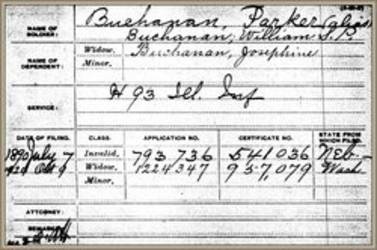 NAME OF SOLDIER: Buchanan, Parker (alias
Buchanan, William S. P.
NAME OF DEPENDENT: Widow, Buchanan, Josephine
Minor,
SERVICE: H 93 Ill. Inf
DATE OF FILING. CLASS. APPLICATION NO. CERTIFICATE NO. STATE FROM WHICH FILED.
1890 July 7 Invalid, 793 736 541036 Neb.
Oct 9 Widow, 1224347 957,079 Wash
Minor,
ATTORNEY:
REMARKS: